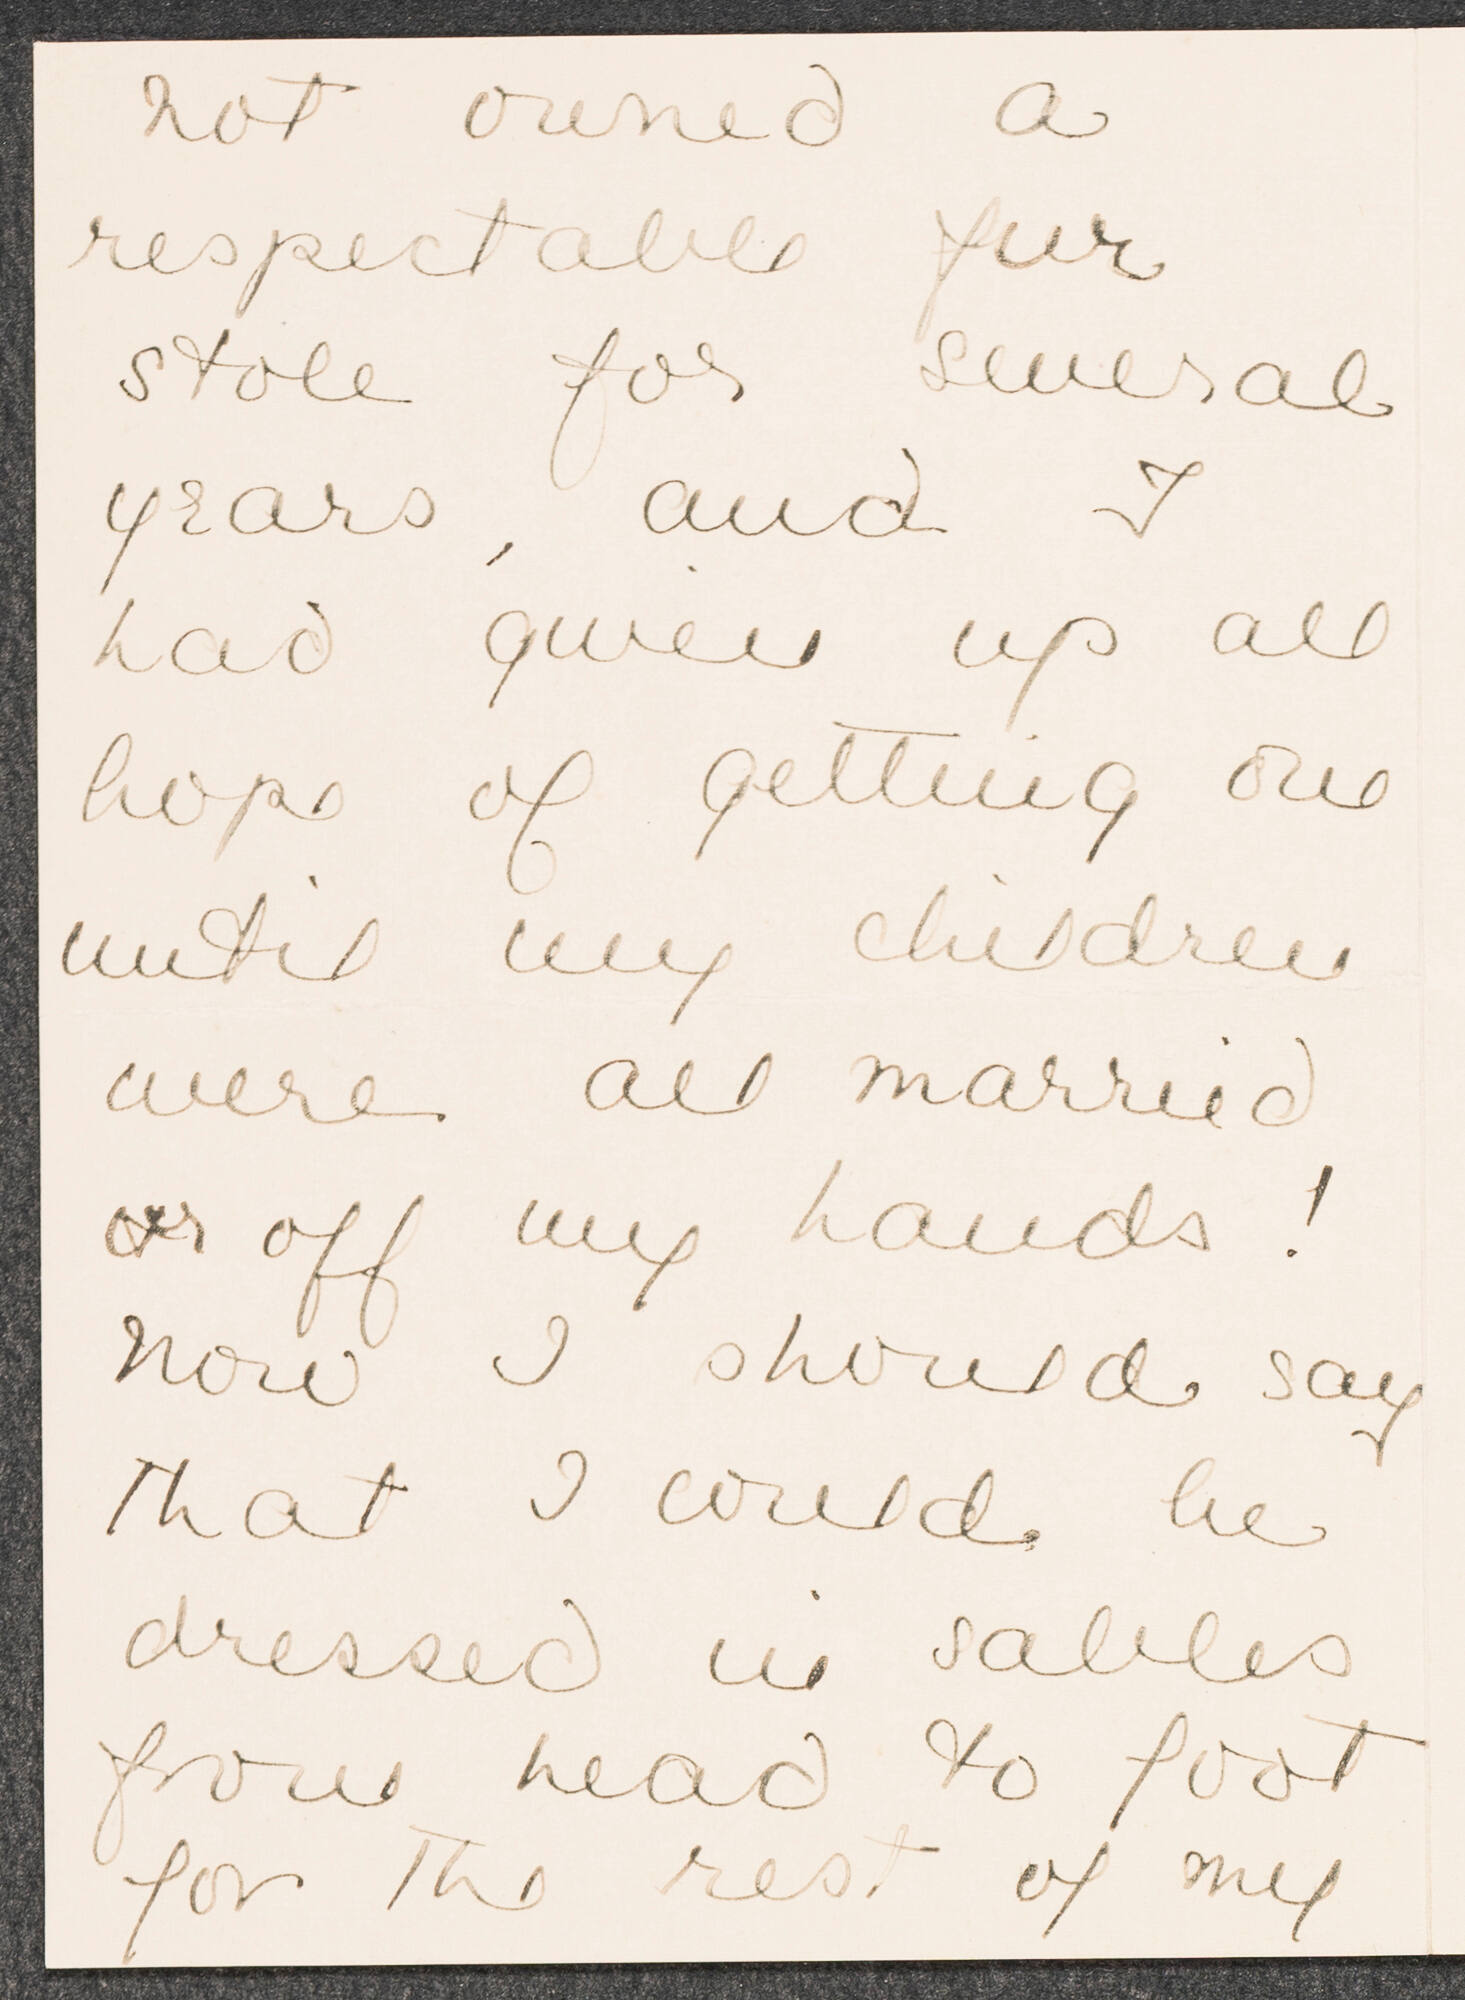 not owned a
respectable fur
stole for several
years, and I
had given up all
hope of getting one
until my children
were all married
or off my hands!
Now I should say
that I could be
dressed in sables
from head to foot
for the rest of my